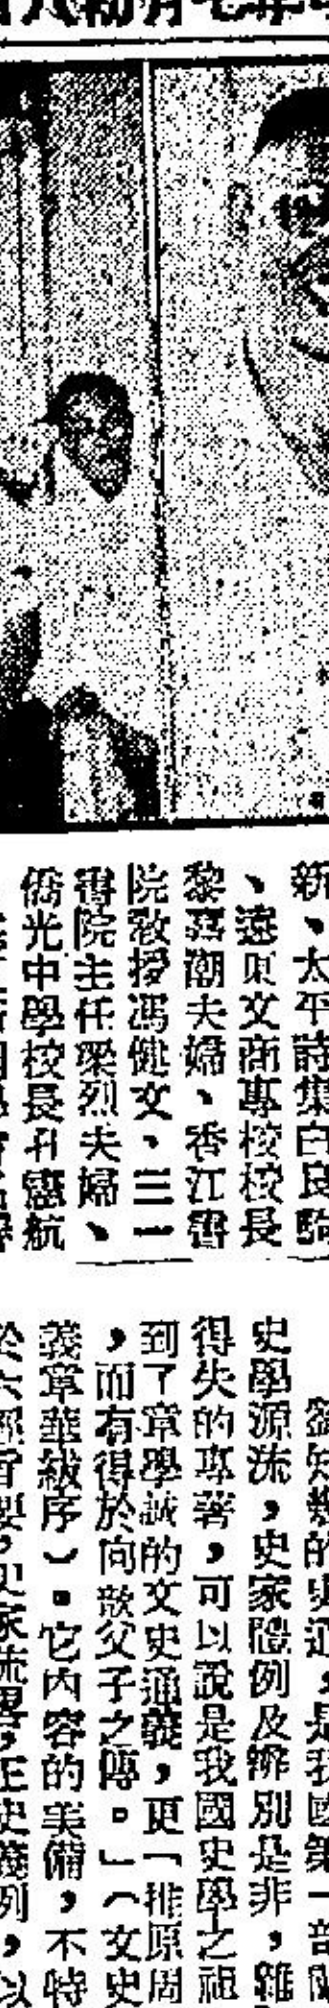 新、太平詩集白良駒
、遠東文商專校校長
黎嘉潮夫婦、香江書
院敎授馮健文、三一
書院主任梁烈夫婦、
僑光中學校長 憲航
劉知幾的史通，是我國第一部
史學源流，史家體例及辨別是非，雜
得失的專著，可以說是我國史學之祖
到了章學誠的文史通義，更「推原周
，而有得於向歆父子之傳。」（文史
義章華紱序）。它內容的美備，不特